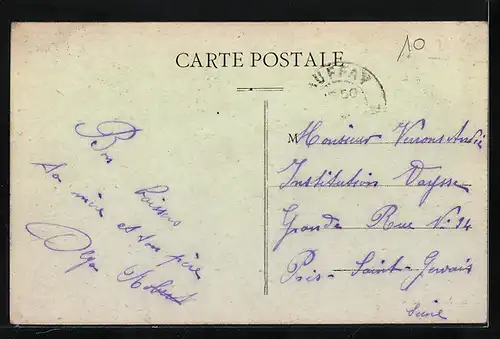 CARTE POSTALE
10
AUFFAY
Bons baisers
ta mère et ton père
Olga Robert
M Monsieur
Institution Vaysse
Grande Rue No. 14
Près - Saint-Gervais
Seine